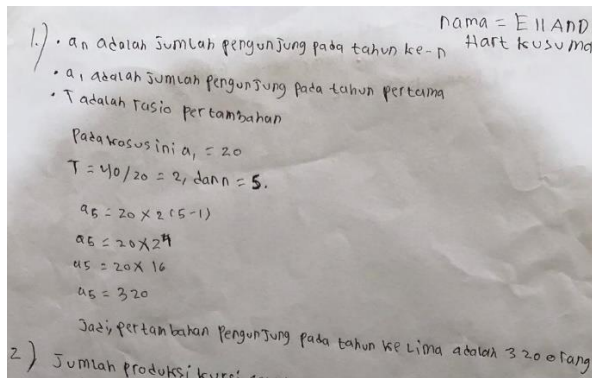 nama = EllAND
Hart kusuma
1.) · an adalah jumlah pengunjung pada tahun ke-n
· a1 adalah jumlah pengunjung pada tahun pertama
· T adalah rasio pertambahan
Pada kosus ini a1 = 20
T = 40/20 = 2, dan n = 5.
a5 = 20 x 2 (5-1)
a5 = 20 x 2⁴
a5 = 20 x 16
a5 = 320
Jadi, pertambahan pengunjung pada tahun ke lima adalah 320 orang
2) Jumlah produksi kursi